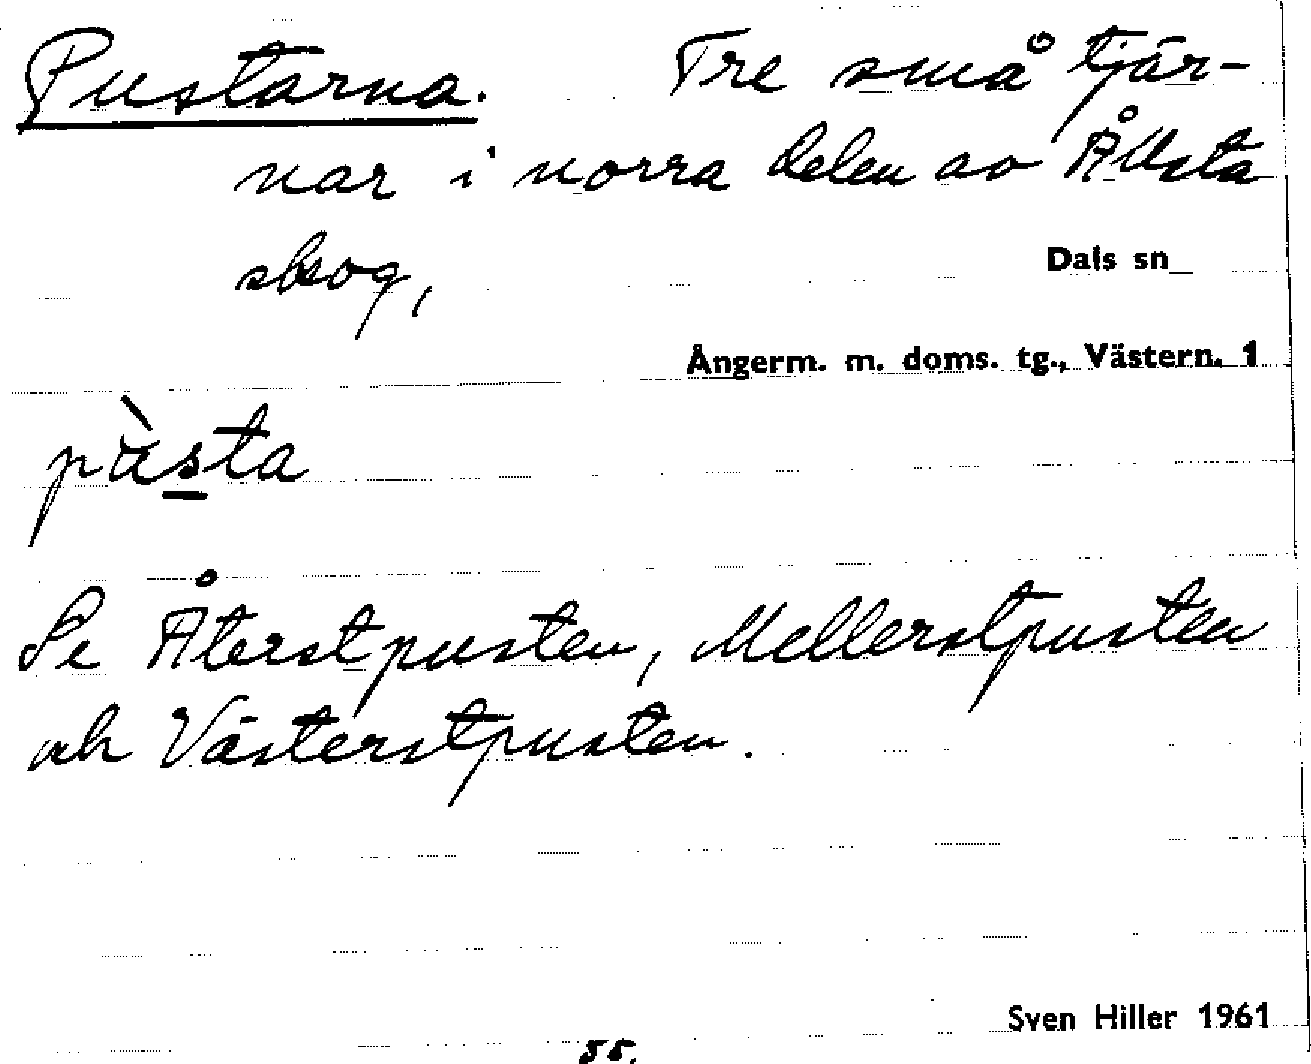 Pustarna. Tre små tjär-
nar i norra delen av Ållsta
skog,
Dals sn
Ångerm. m. doms. tg., Västern. 1
pùsta
Se Återstpusten, Mellerstpusten
och Västerstpusten.
Sven Hiller 1961
55.